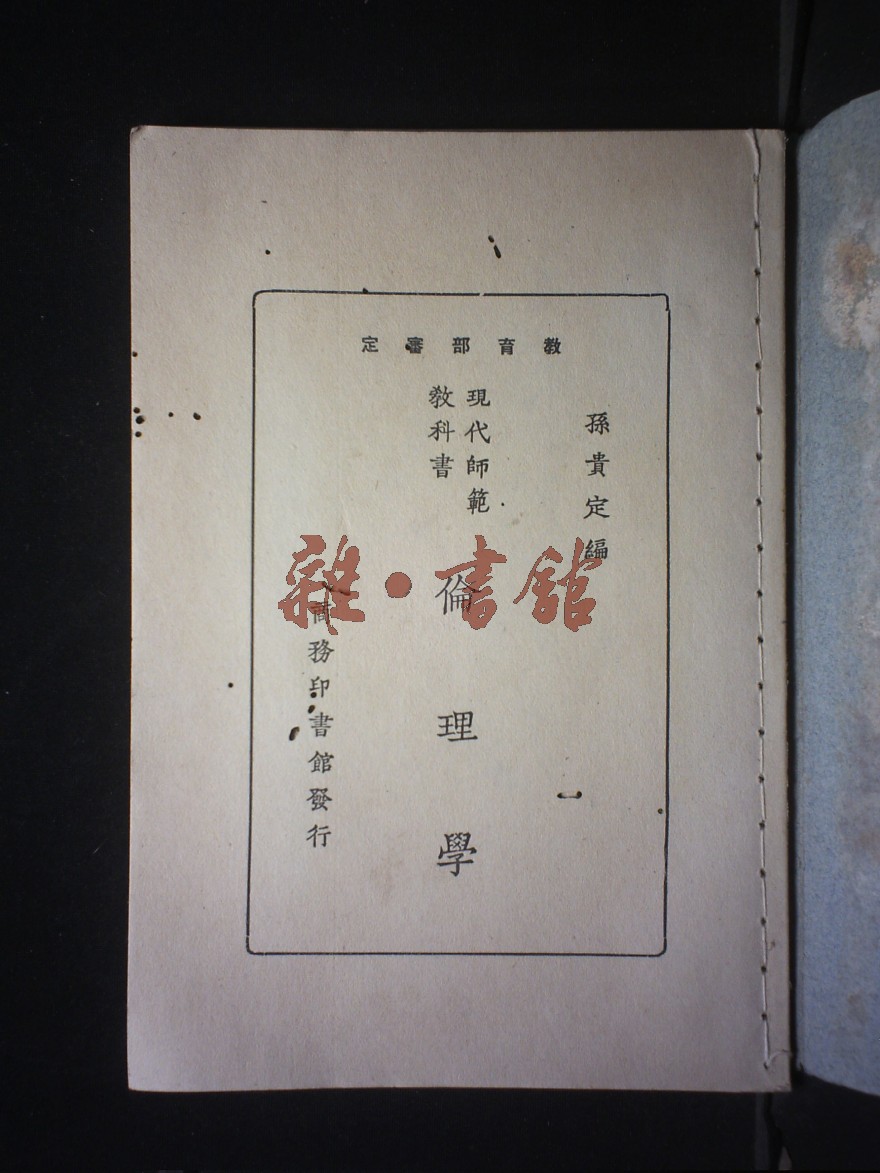 教育部審定
孫貴定編
現代師範
教科書
倫理學
商務印書館發行
雜·書館